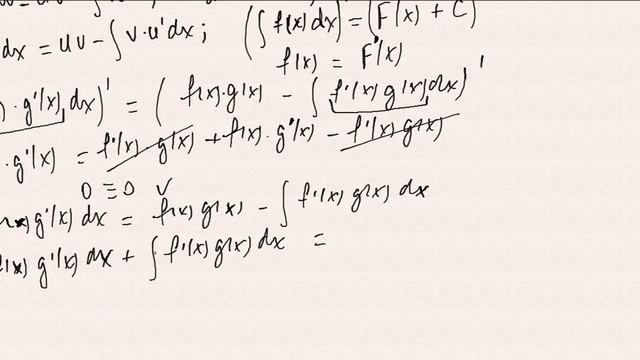 dx = uv - ∫ v·u'dx ; (∫ f(x) dx)' = (F(x) + C)'
f(x) = F'(x)
· g'(x) dx)' = ( f(x)·g(x) - ∫ f'(x) g(x) dx)'
· g'(x) = f'(x) g(x) + f(x) · g'(x) - f'(x) g(x)
0 ≡ 0 ✓
g'(x) dx = f(x) g(x) - ∫ f'(x) g(x) dx
f(x) g'(x) dx + ∫ f'(x) g(x) dx =